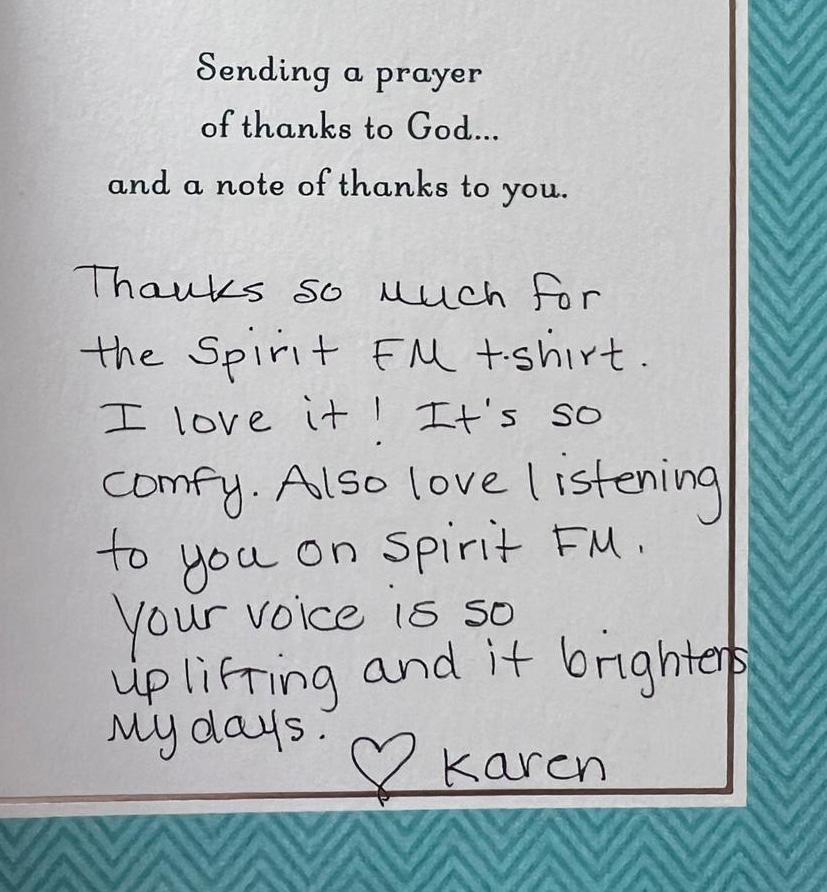 Sending a prayer
of thanks to God...
and a note of thanks to you.
Thanks so much for
the Spirit FM t-shirt.
I love it! It's so
comfy. Also love listening
to you on Spirit FM.
Your voice is so
uplifting and it brightens
my days.
♡ Karen